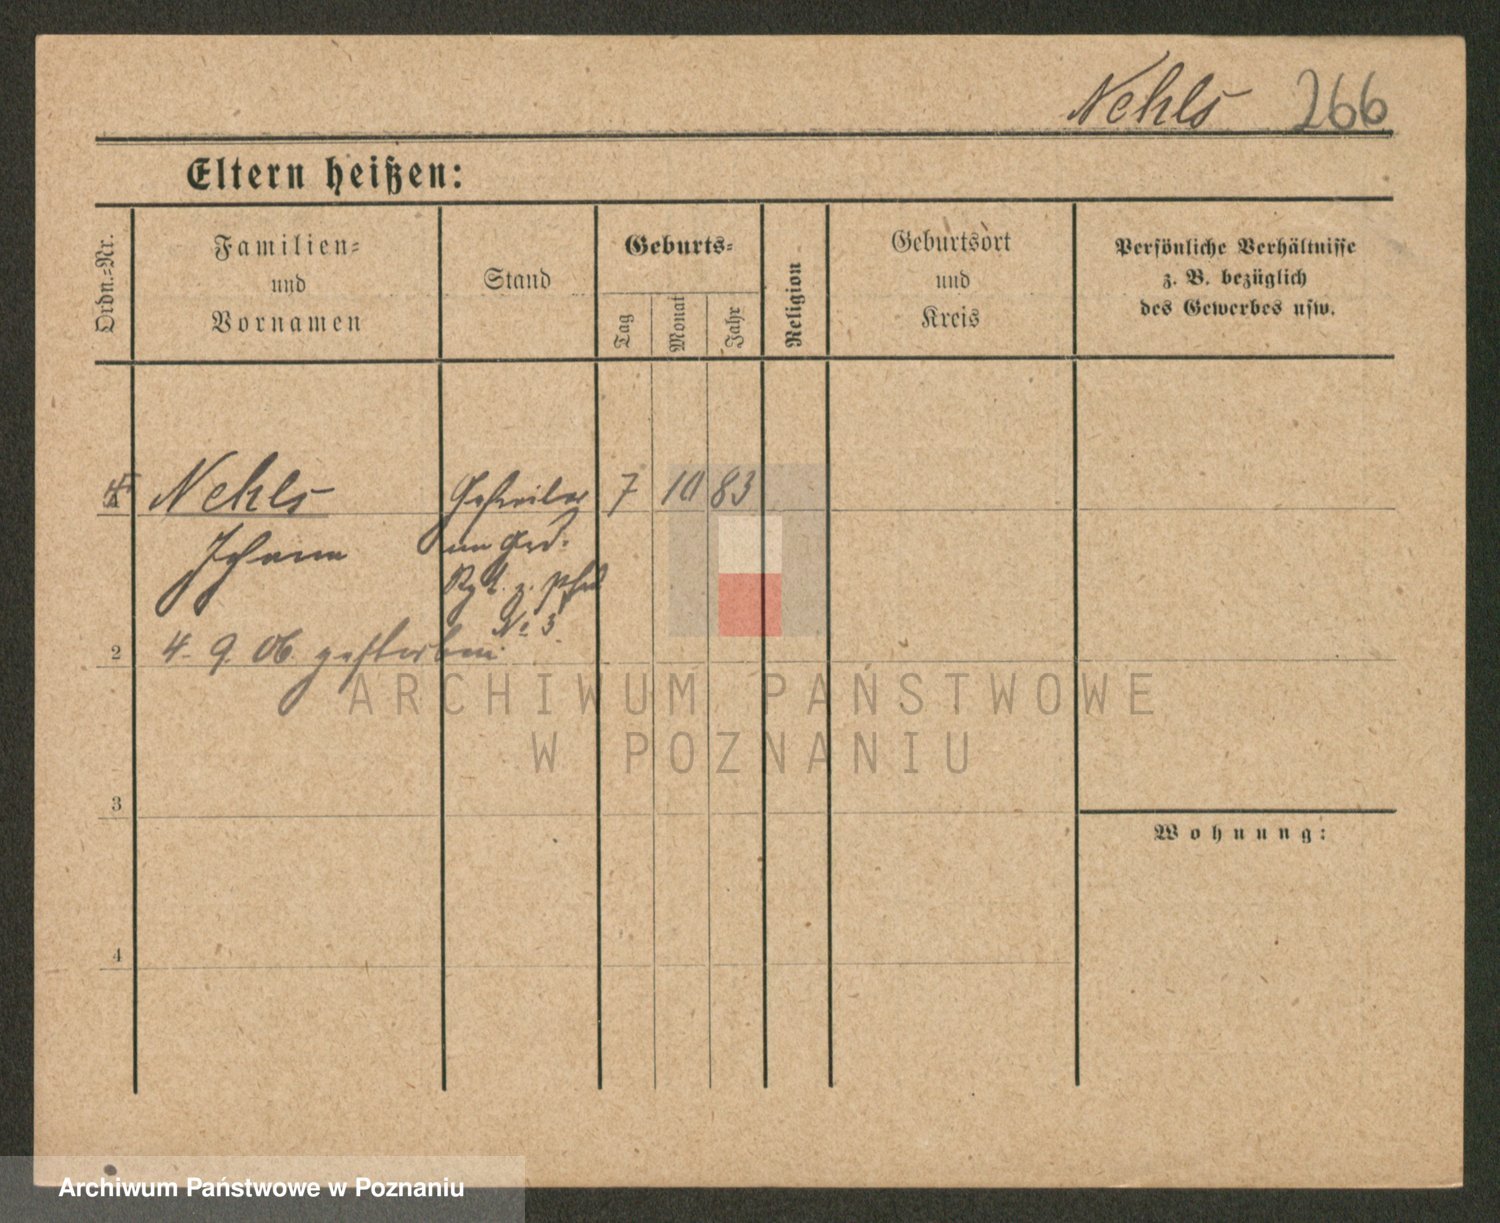 Nehls 266
Eltern heißen:
Ordn.=Nr.
Familien=
und
Vornamen
Stand
Geburts=
Tag
Monat
Jahr
Religion
Geburtsort
und
Kreis
Persönliche Verhältnisse
z. B. bezüglich
des Gewerbes usw.
1 Nehls Gefreiter 7 10 83
Johann im Gren.
Rgt. z. Pferd
No 3
2 4. 9. 06. gestorben.
3
4
Wohnung:
ARCHIWUM PAŃSTWOWE
W POZNANIU
Archiwum Państwowe w Poznaniu